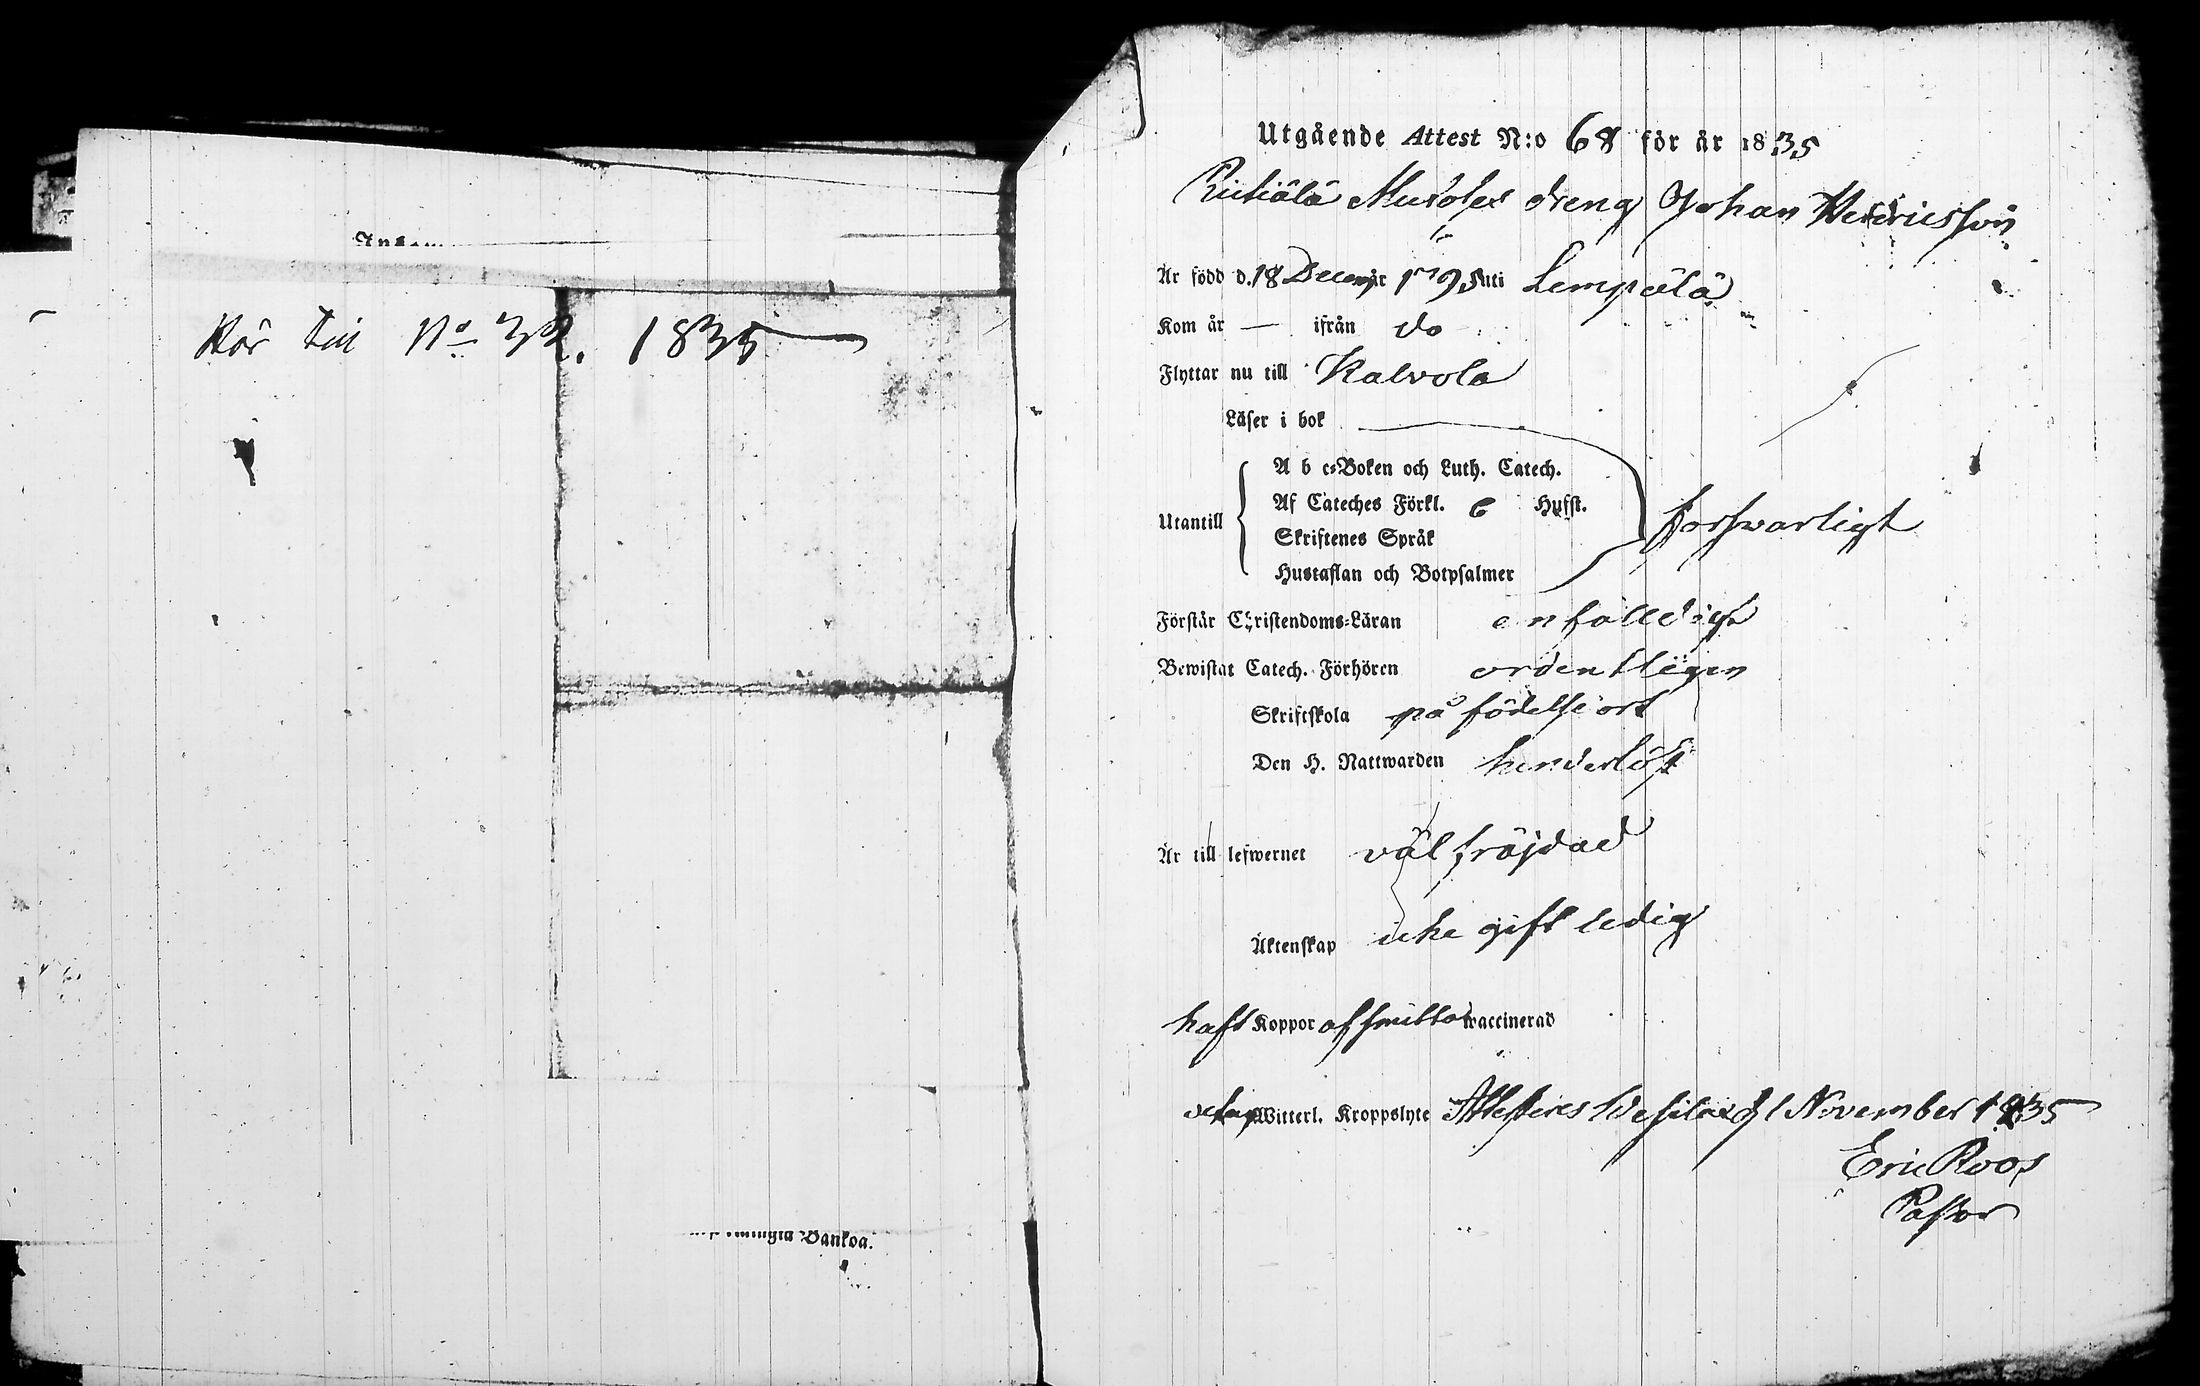 Hör till No 32. 1835
Bankoa.
Utgående Attest N:o 68 för år 1835
dreng Johan Hendricsson
Är född d. 18 Decemb:r 1795 uti Lempälä
Kom år — ifrån do
Flyttar nu till Kalvola
Läser i bok
Utantill
A b c-Boken och Luth. Catech.
Af Cateches Förkl. 6 Hufst.
Skriftenes Språk
Hustaflan och Botpsalmer
forsvarligt
Förstår Christendoms-Läran enfålldigt
Bewistat Catech. Förhören ordentligen
Skriftskola på födelse ort
Den H. Nattwarden hinderlöst
Är till lefwernet väl fräjdad
Äktenskap icke gift ledig
haft Koppor af smitta waccinerad
Witterl. Kroppslyte Attesteres Wesilax d 1 November 1835
Eric Roos
Pastor